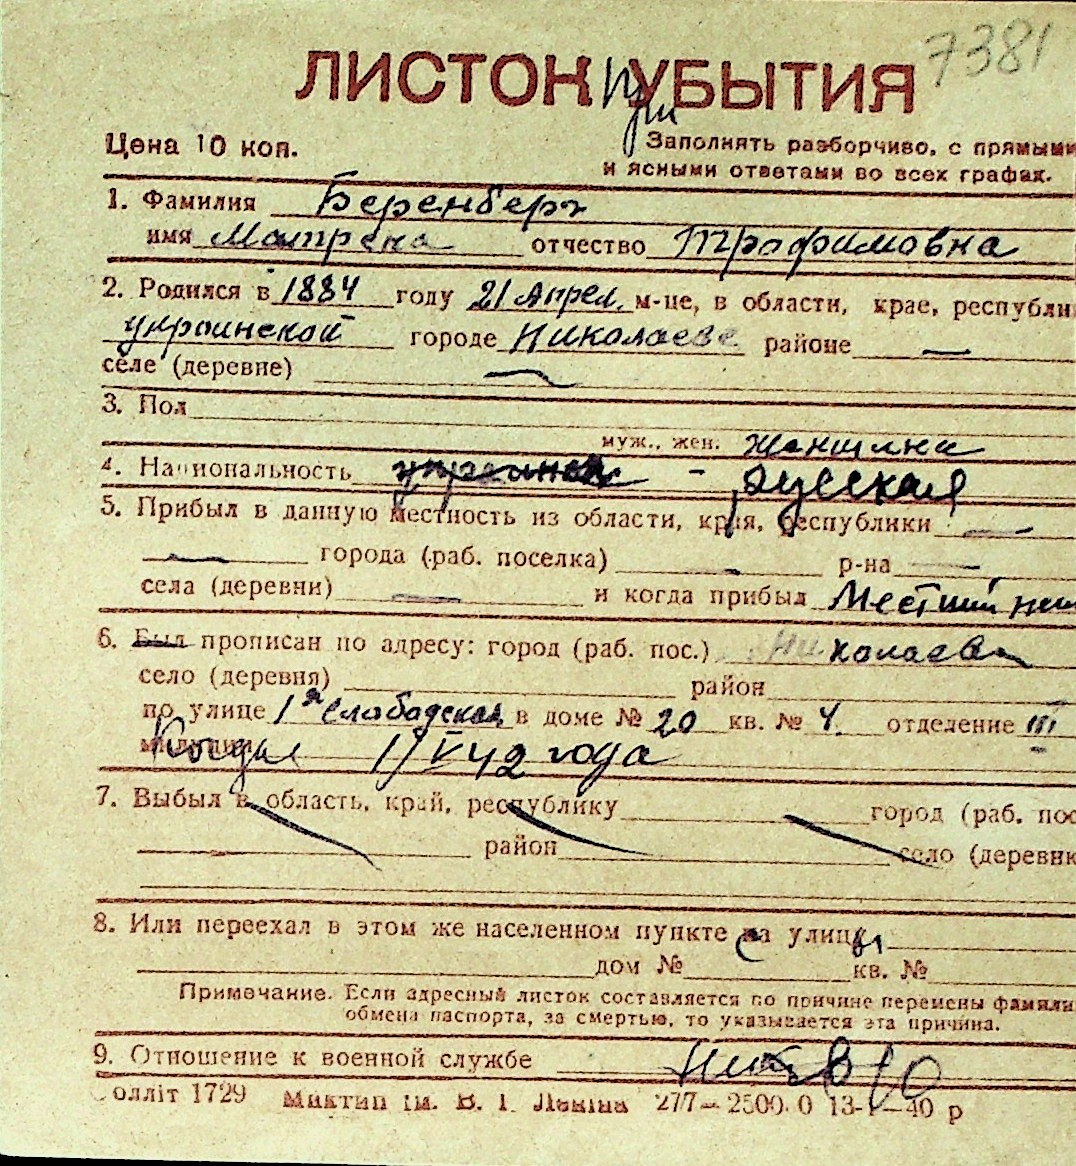 7381
ЛИСТОК При УБЫТИЯ
Цена 10 коп.
Заполнять разборчиво, с прямыми
и ясными ответами во всех графах.
1. Фамилия Беренберг
имя Матрена отчество Трофимовна
2. Родился в 1884 году 21 Апрел. м-це, в области, крае, республи
украинской городе Николаеве районе —
селе (деревне) —
3. Пол
муж., жен. женщина
4. Национальность украинск - русская
5. Прибыл в данную местность из области, края, республики —
— города (раб. поселка) — р-на —
села (деревни) — и когда прибыл Местный
6. Был прописан по адресу: город (раб. пос.) Николаев
село (деревня) район
по улице 1я Слободская в доме № 20 кв. № 4. отделение III
милиции Когда 1/V 42 года
7. Выбыл в область, край, республику город (раб. пос
район село (деревню
8. Или переехал в этом же населенном пункте с улицы
дом № кв. №
Примечание. Если адресный листок составляется по причине перемены фамили
обмена паспорта, за смертью, то указывается эта причина.
9. Отношение к военной службе
олліт 1729 Миктип ім. В. І. Леніна 277—2500.0 13-I-40 р